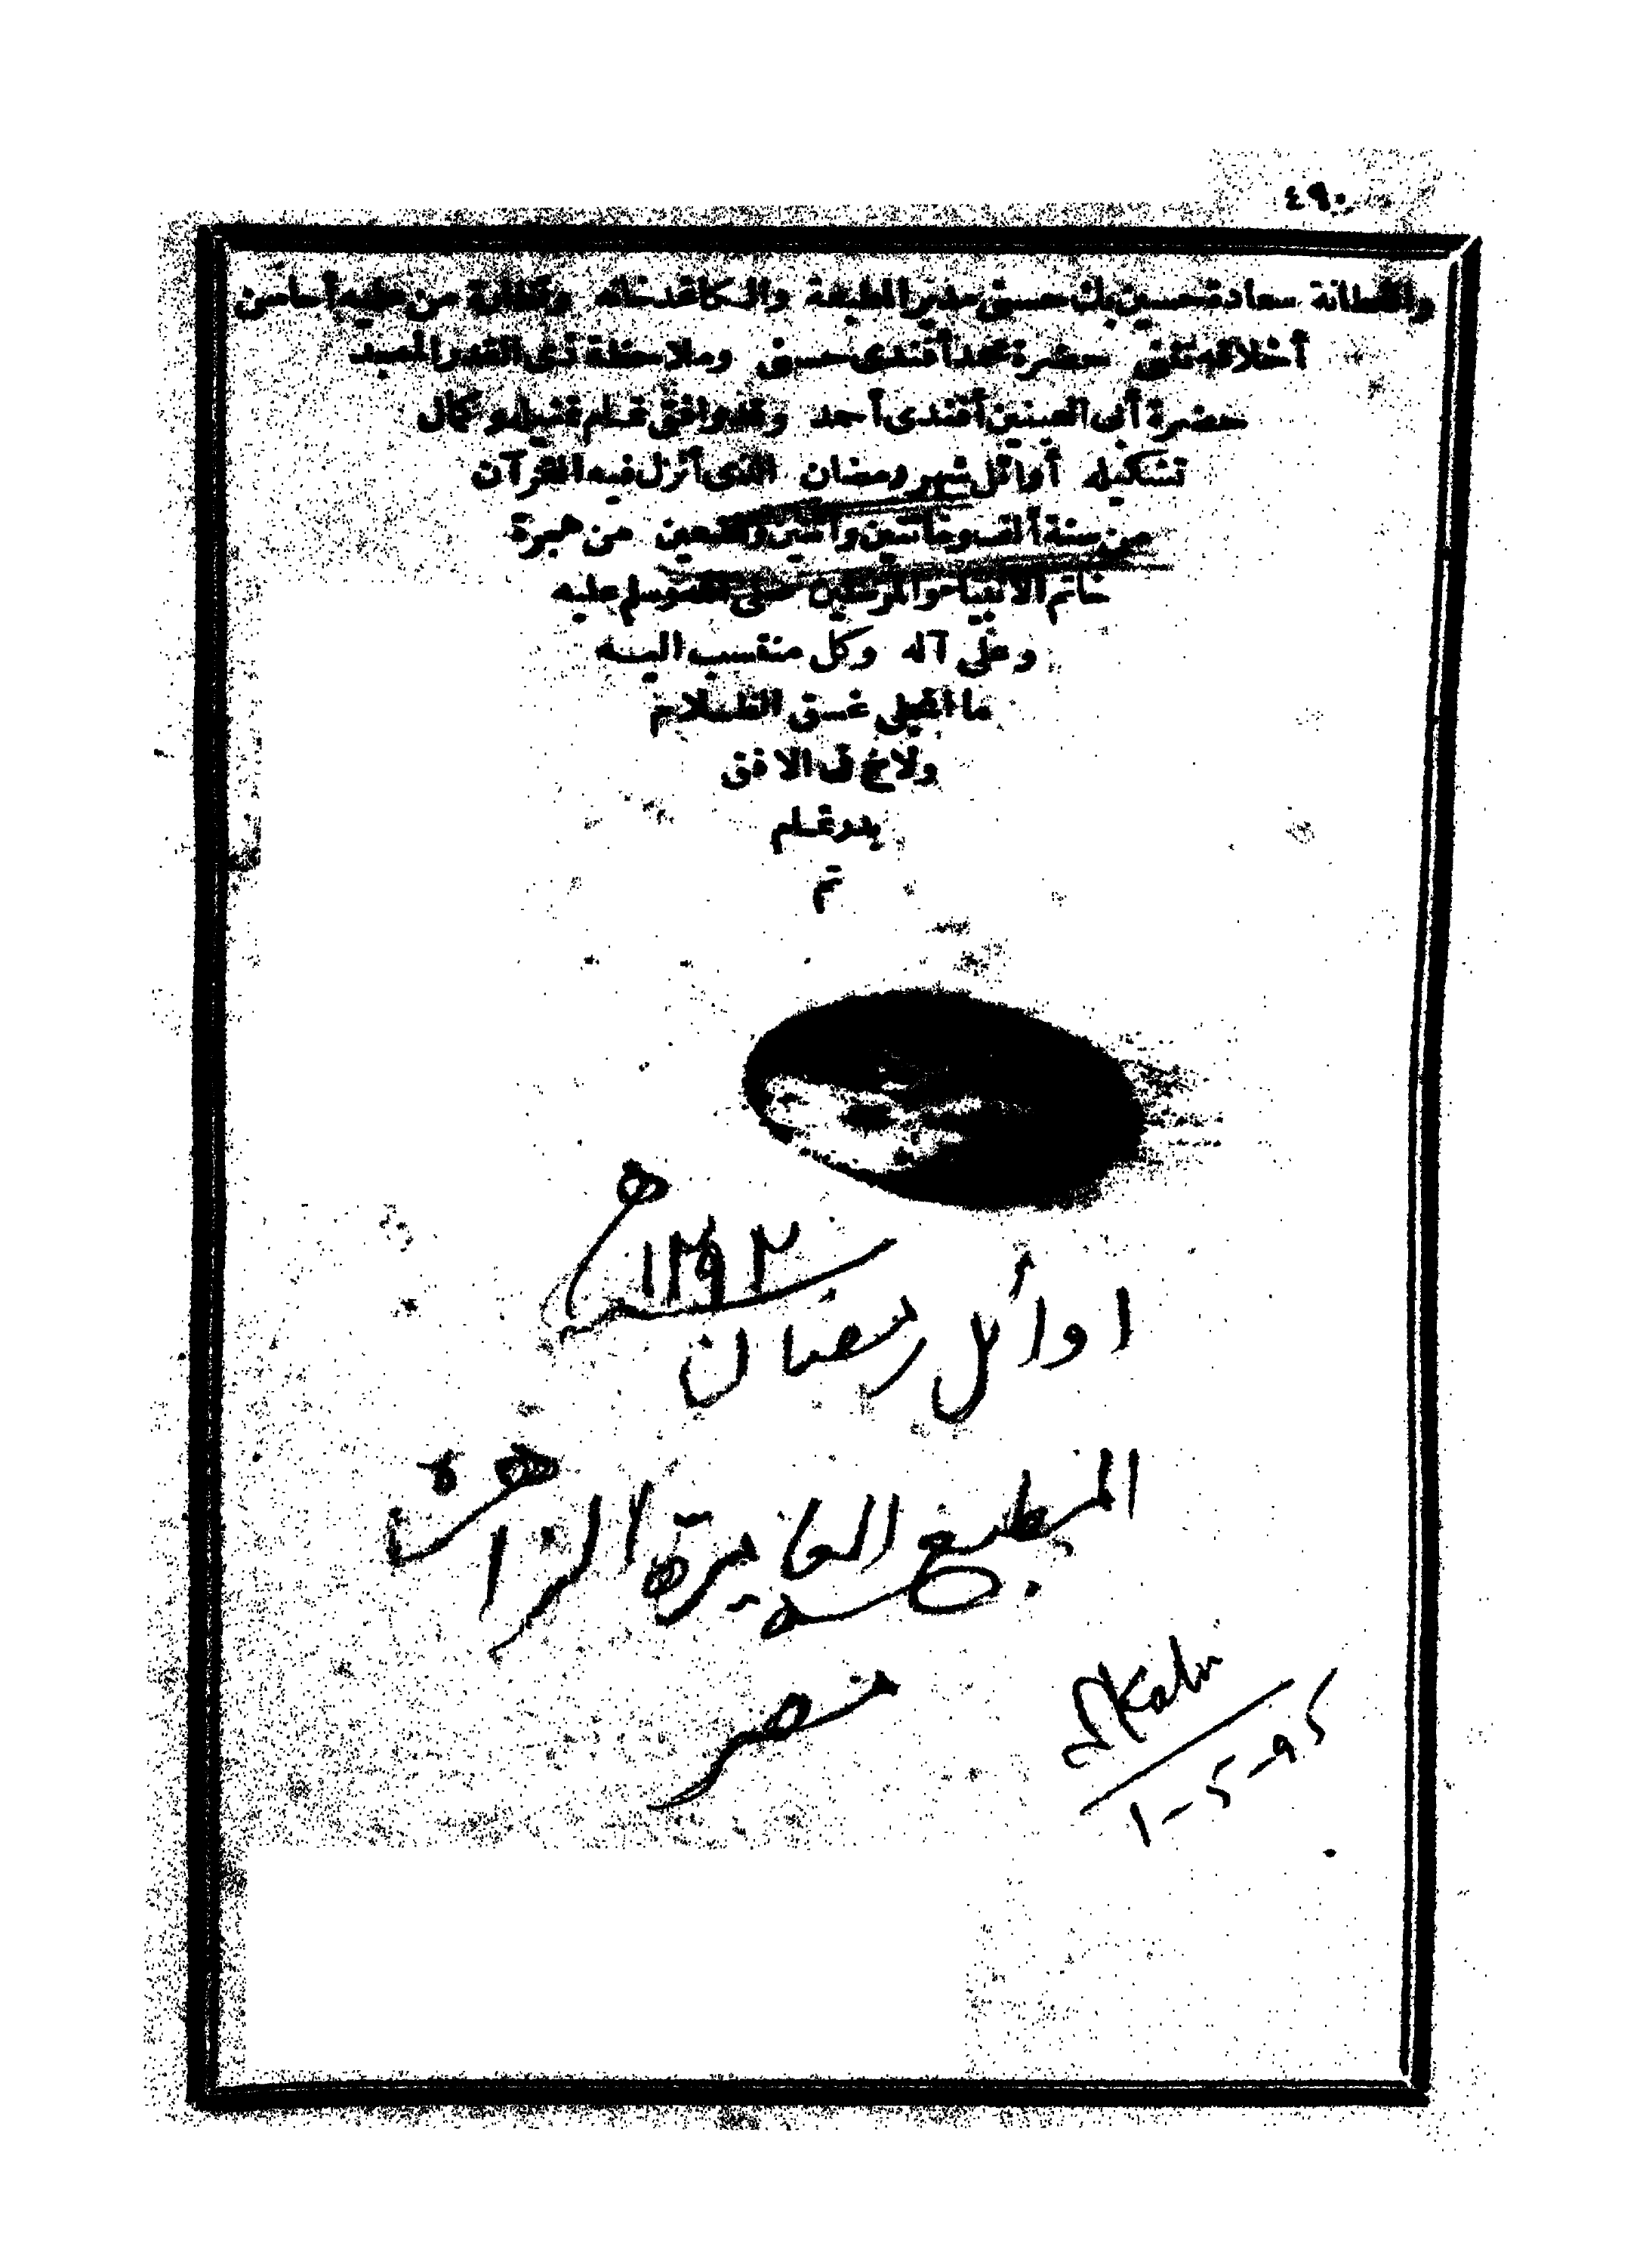 ٤٩٠
والفطانة سعادة حسين بك حسنى مدير المطبعة والكاغدخانه ونظارة من عليه أحاسن
أخلاقه تثنى حضرة محمد أفندى حسنى وملاحظة ذى القدر الممجد
حضرة أبى العينين أفندى أحمد وقد وافق تمام تمثيله وكمال
تشكيله أوائل شهر رمضان الذى أنزل فيه القرآن
من سنة ألف ومائتين واثنين وتسعين من هجرة
خاتم الانبياء والمرسلين صلى الله وسلم عليه
وعلى آله وكل منتسب اليه
ما انجلى غسق الظلام
ولاح فى الافق
بدر تمام
تم
١٢٩٢ هـ
اوائل رمضان
المطبعة العامرة الزاهرة
مصر
1-5-95